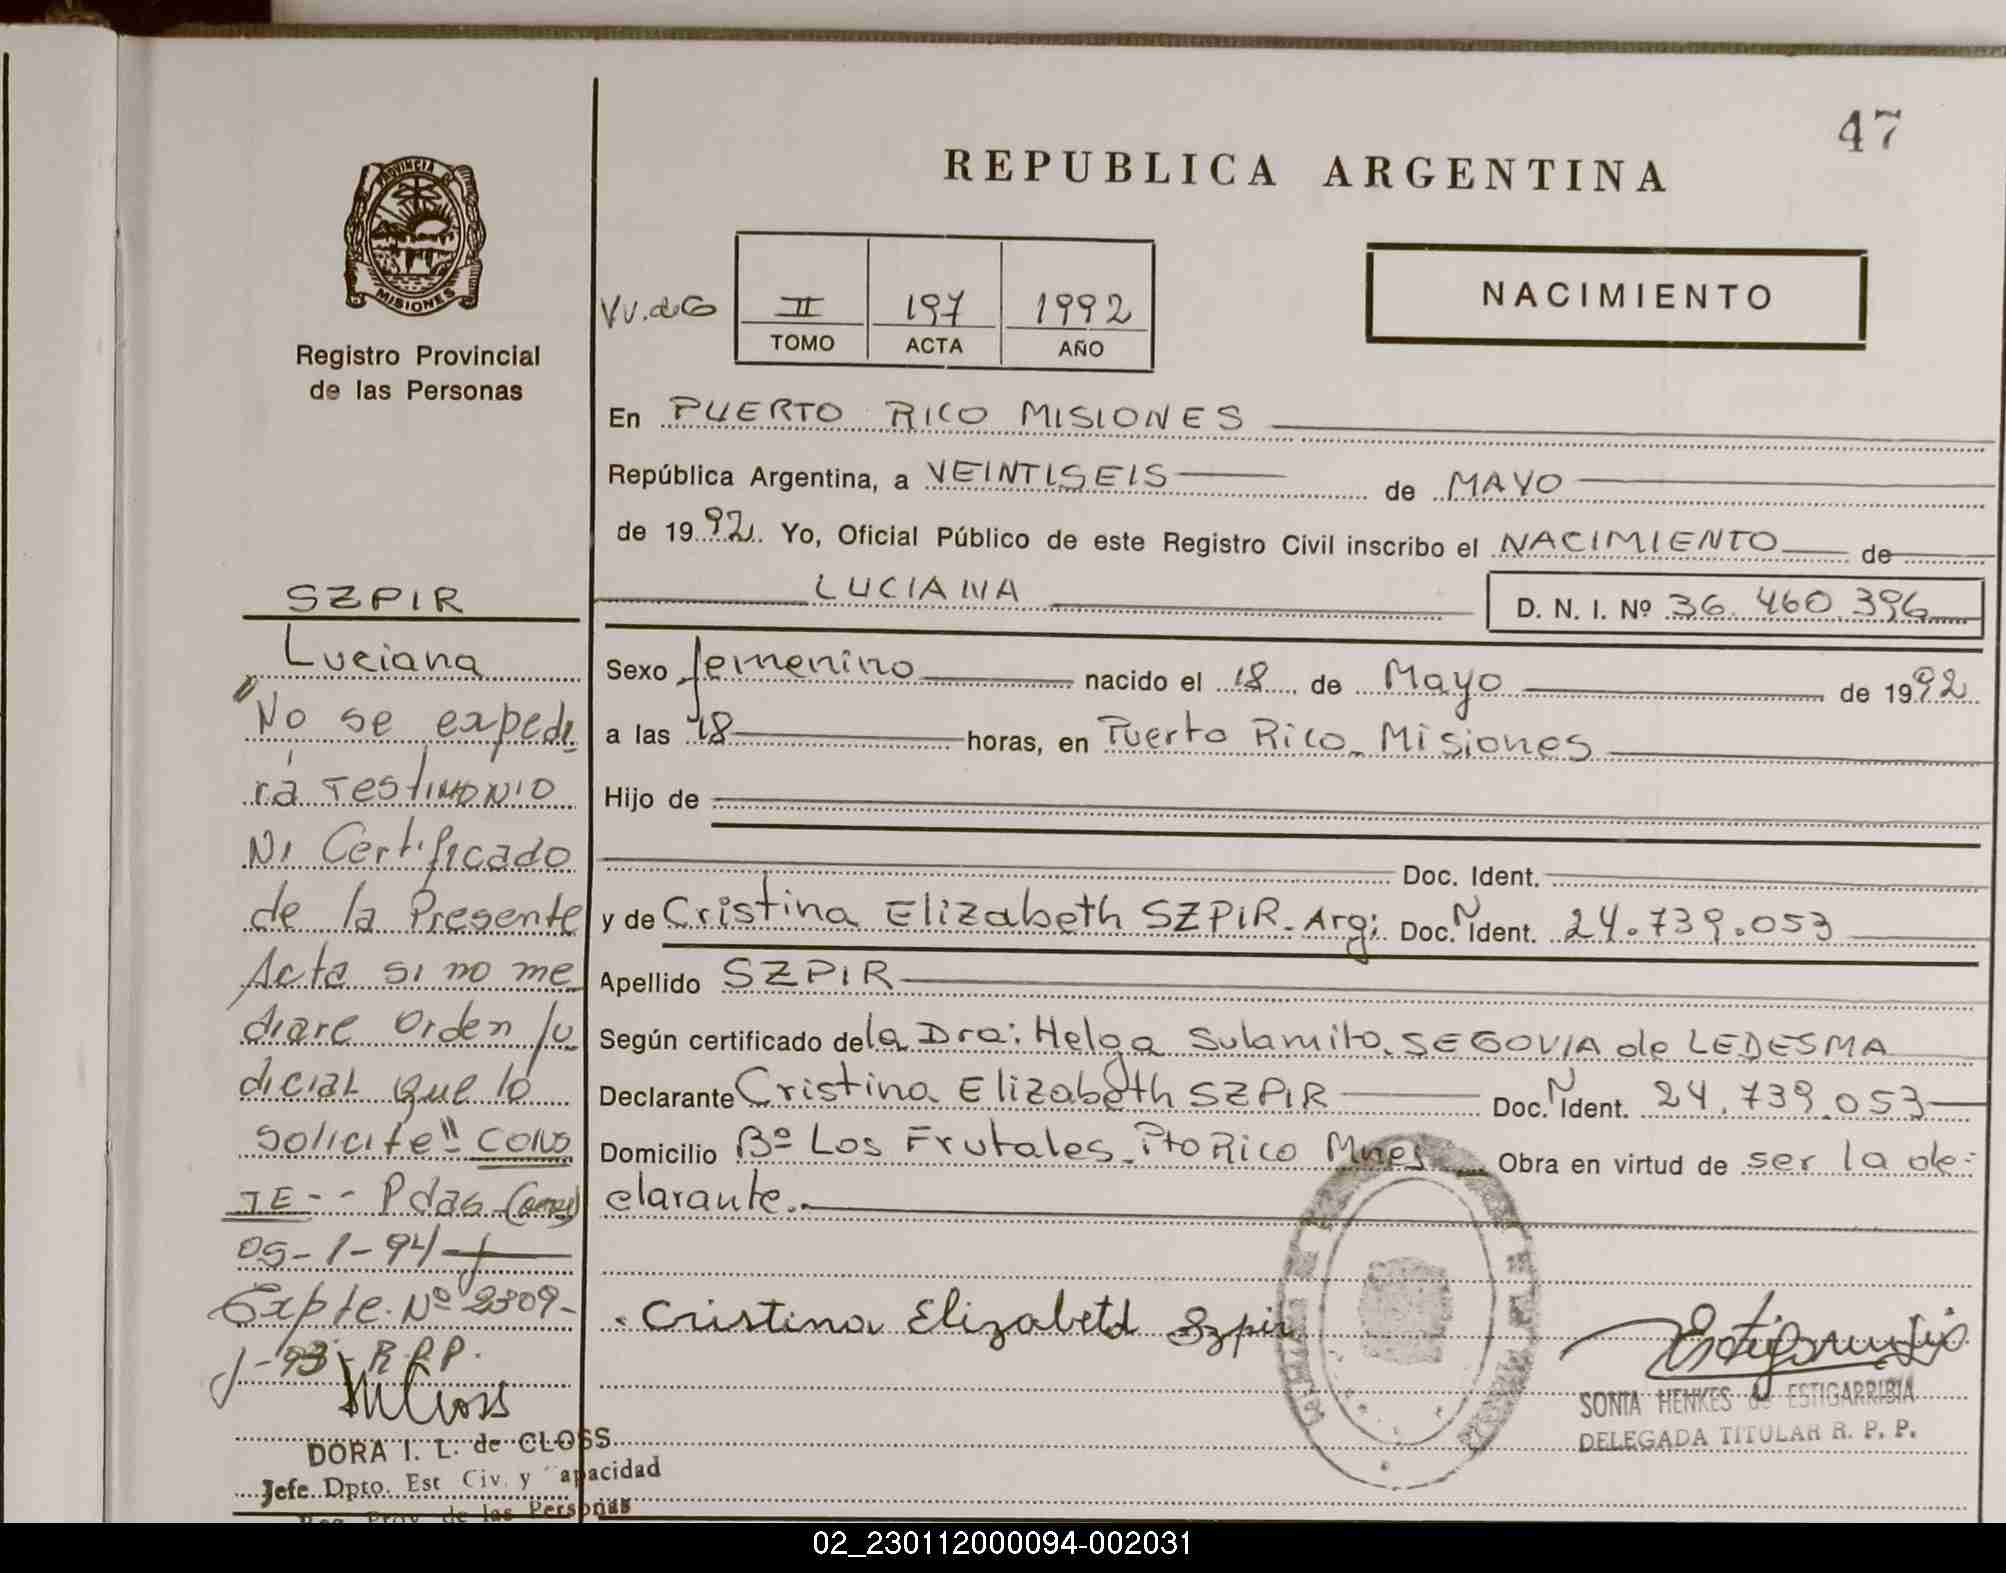 47
REPUBLICA ARGENTINA
PROVINCIA DE
MISIONES
Registro Provincial
de las Personas
NACIMIENTO
II 197 1992
TOMO ACTA AÑO
En PUERTO RICO MISIONES
República Argentina, a VEINTISEIS de MAYO
de 1992. Yo, Oficial Público de este Registro Civil inscribo el NACIMIENTO de
LUCIANA D. N. I. Nº 36.460.396
Sexo femenino nacido el 18 de Mayo de 1992
a las 18 horas, en Puerto Rico - Misiones
Hijo de
Doc. Ident.
y de Cristina Elizabeth SZPIR - Arg; Doc. N Ident. 24.739.053
Apellido SZPIR
Según certificado de la Dra: Helga Sulamita SEGOVIA de LEDESMA
Declarante Cristina Elizabeth SZPIR Doc. N Ident. 24.739.053
Domicilio Bº Los Frutales - Pto Rico Mnes Obra en virtud de ser la de-
clarante.
Cristina Elizabetd Szpir
SONIA HENKES de ESTIGARRIBIA
DELEGADA TITULAR R. P. P.
SZPIR
Luciana
"No se expedi
rá Testimonio
Ni Certificado
de la Presente
Acta si no me
diare Orden Ju
dicial que lo
solicite" CONS
TE -- Pdas
05-1-94
Expte. Nº 2309-
J-93- R.P.P.
DORA I. L. de CLOSS
Jefe Dpto. Est Civ. y apacidad
Reg. Prov. de las Personas
02_230112000094-002031